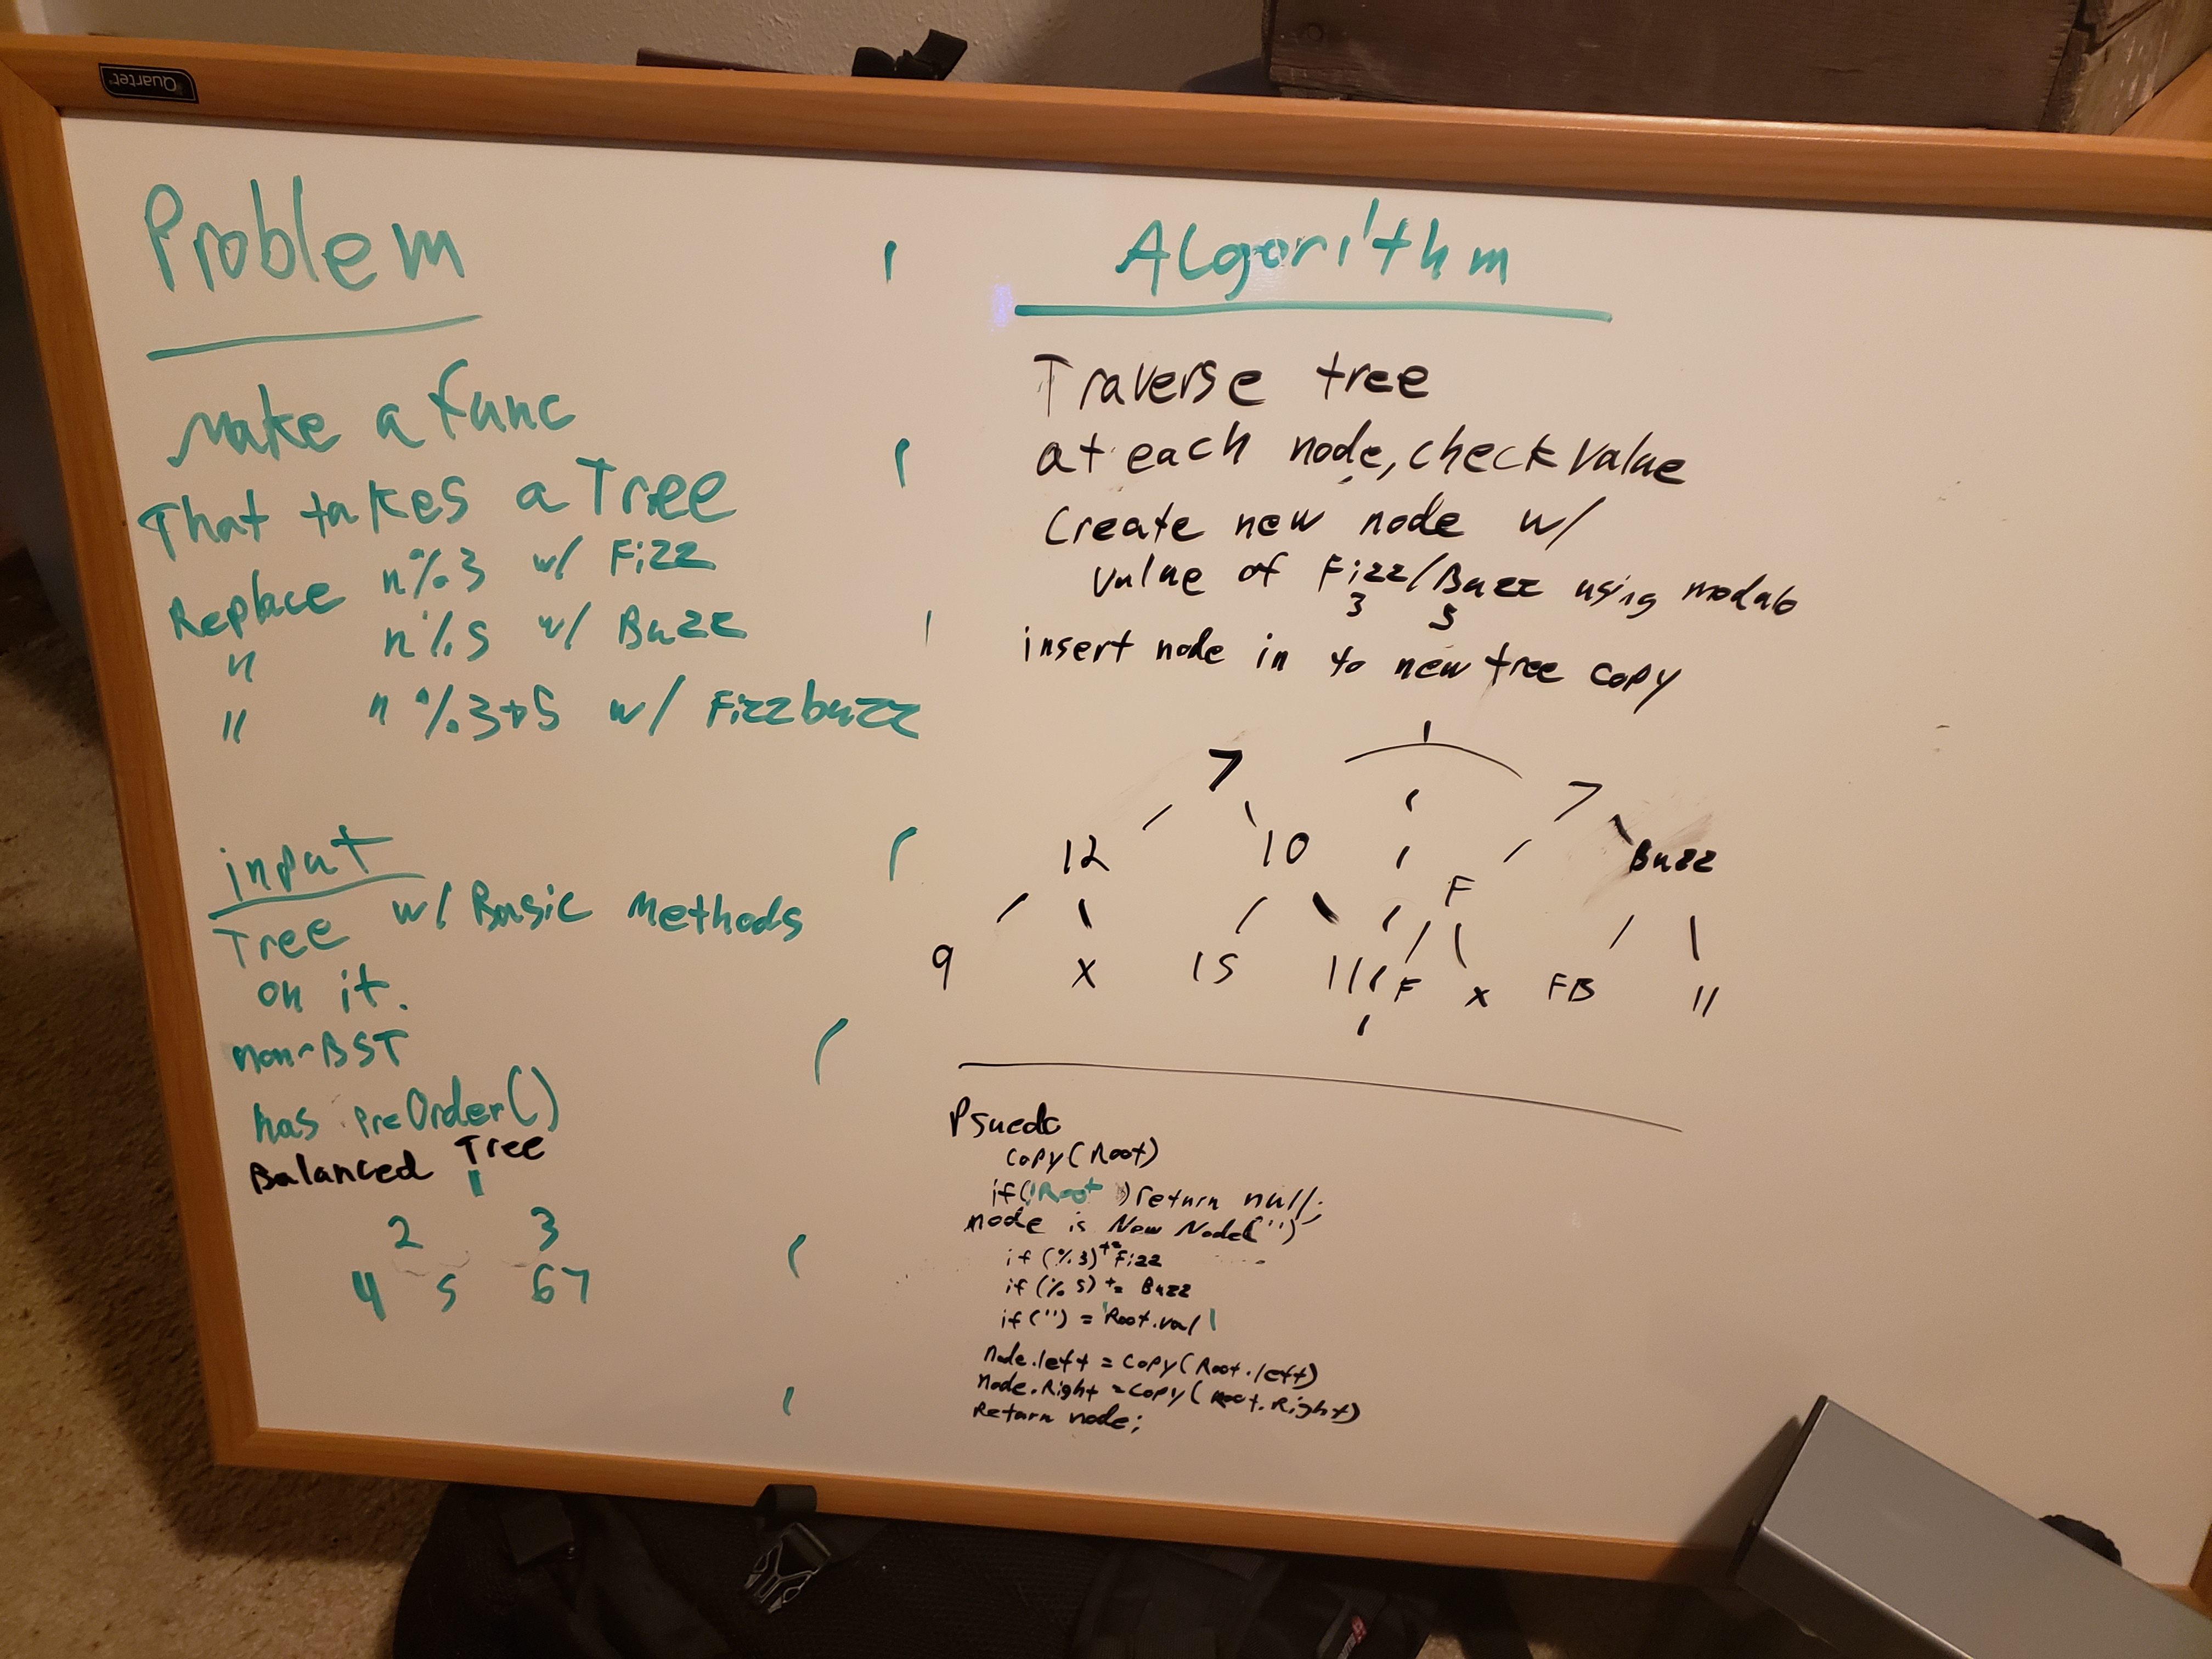 Quartet
Problem
make a func
That takes a Tree
Replace n%3 w/ Fizz
" n%5 w/ Buzz
" n%3+5 w/ Fizzbuzz
input
Tree w/ Basic Methods
on it.
non-BST
has preOrder()
Balanced Tree
1
2 3
4 5 67
Algorithm
Traverse tree
at each node, check value
Create new node w/
value of Fizz/Buzz using modulo
3 5
insert node in to new tree copy
7
12 10
9 x 15 11
7
F Buzz
F x FB 11
Psuedo
copy(Root)
if(!Root) return null;
node is New Node('')
if (%3) += Fizz
if (%5) += Buzz
if ('') = 'Root.val'
node.left = copy(Root.left)
node.Right = copy(Root.Right)
Return node;